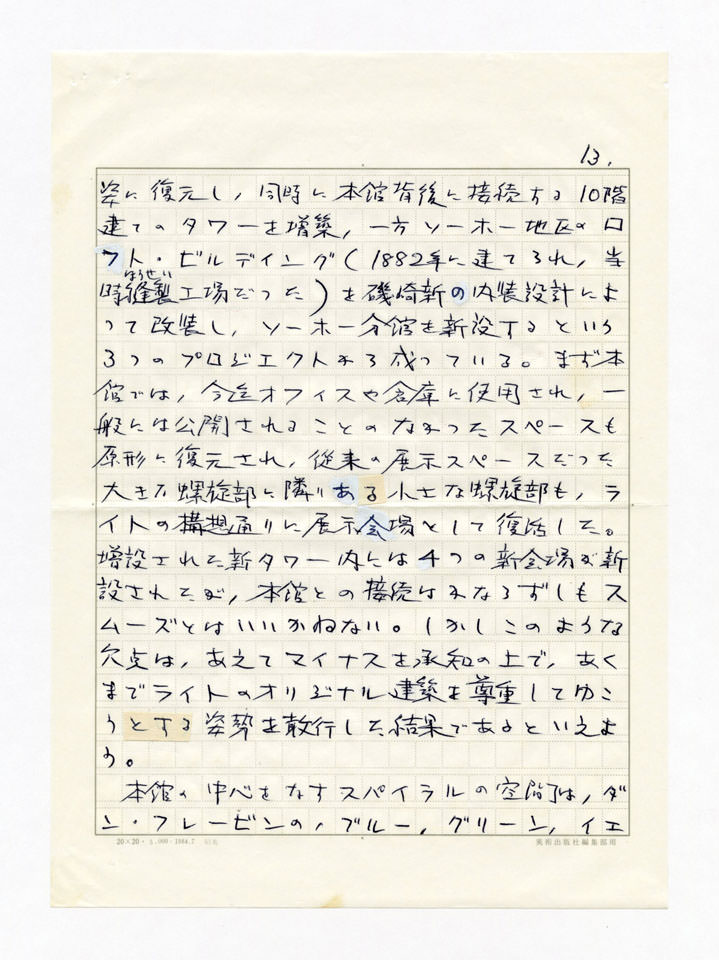 13.
姿に復元し,同時に本館背後に接続する10階
建てのタワーを増築,一方ソーホー地区のロ
フト・ビルディング(1882年に建てられ,当
ほうせい
時縫製工場だった)を磯崎新の内装設計によ
って改装し,ソーホー分館を新設するという
3つのプロジェクトから成っている。まず本
館では,今迄オフィスや倉庫に使用され,一
般には公開されることのなかったスペースも
原形に復元され,従来の展示スペースだった
大きな螺旋部に隣りある小さな螺旋部も,ラ
イトの構想通りに展示会場として復活した。
増設された新タワー内には4つの新会場が新
設されたが,本館との接続はかならずしもス
ムーズとはいいかねない。しかしこのような
欠点は,あえてマイナスを承知の上で,あく
までライトのオリジナル建築を尊重してゆこ
うとする姿勢を敢行した結果であるといえよ
う。
本館の中心をなすスパイラルの空間は,ダ
ン・フレービンの,ブルー,グリーン,イエ
20×20・ 5,000・1984.7
美術出版社編集部用